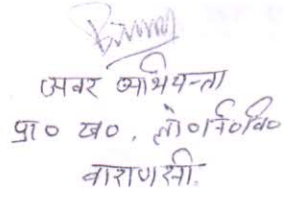 अवर अभियन्ता
प्रा० ख०, लो०नि०वि०
वाराणसी.